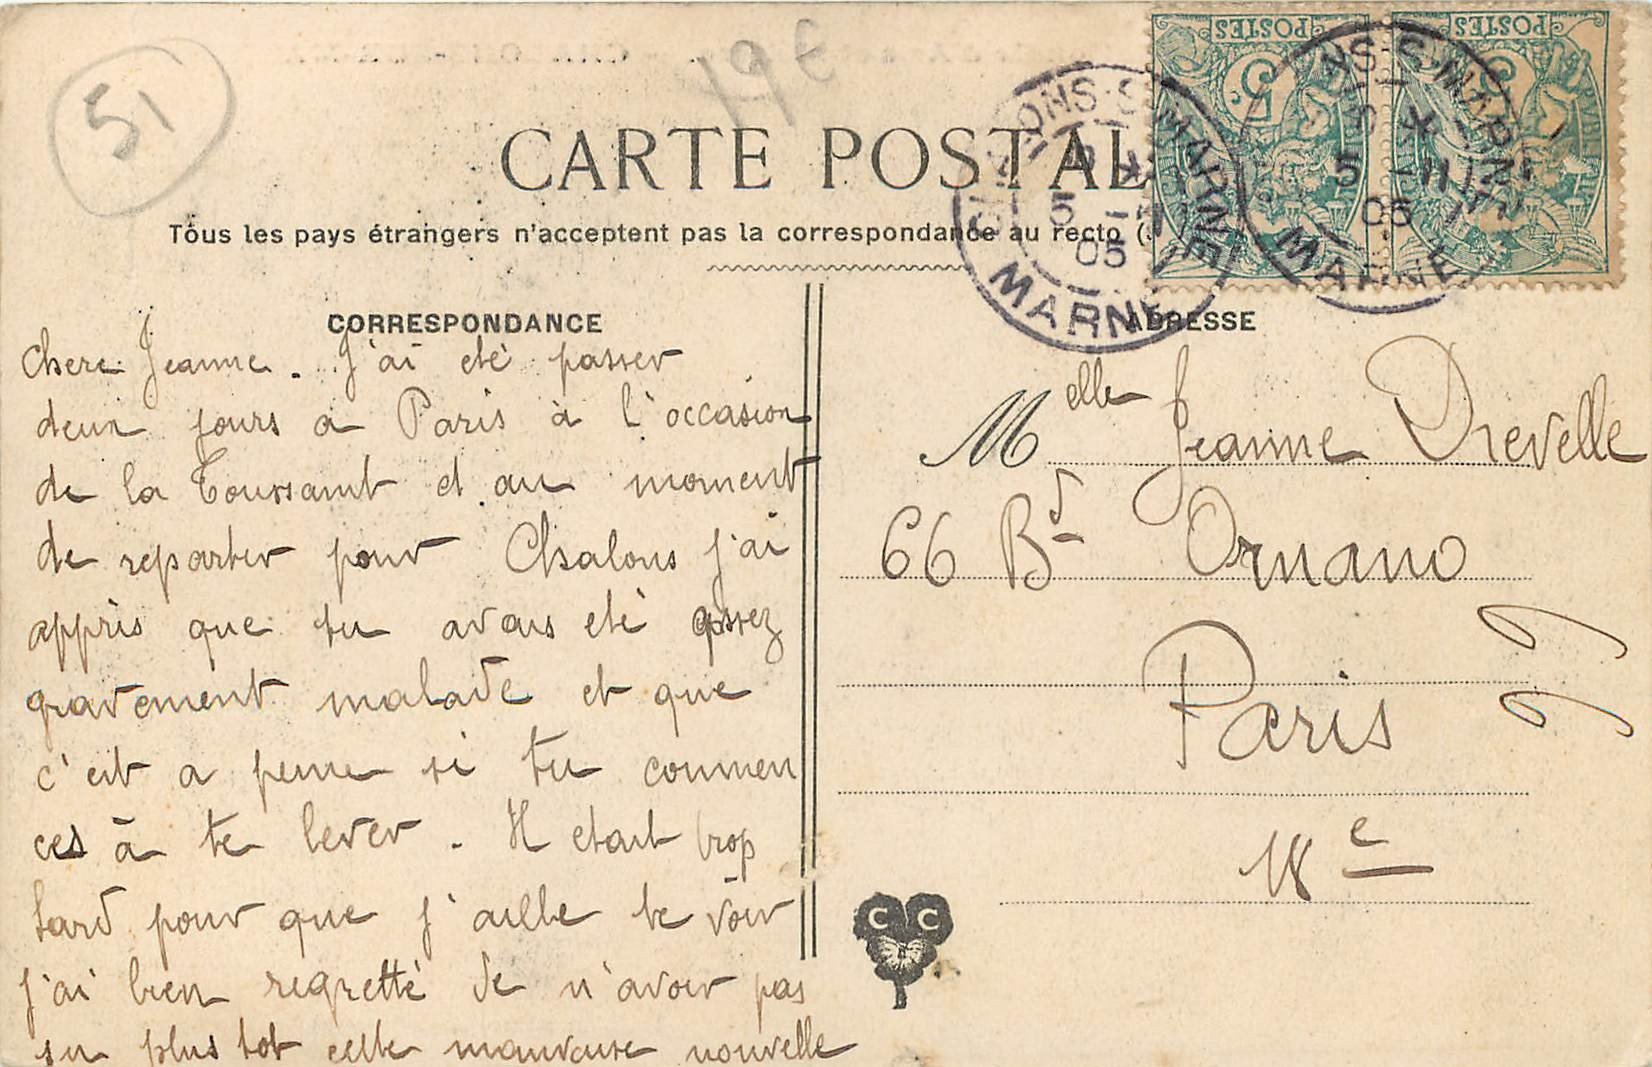 51
CARTE POSTAL
Tous les pays étrangers n'acceptent pas la correspondance au recto (
CORRESPONDANCE
Chere Jeanne. J'ai eté passer
deux jours a Paris à l'occasion
de la Toussaint et au moment
de repartir pour Chalons j'ai
appris que tu avais eté assez
gravement malade et que
c'est a peine si tu commen
ces à te lever. Il etait trop
tard pour que j'aille te voir
j'ai bien regretté de n'avoir pas
su plus tot cette mauvaise nouvelle
POSTES
5
POSTES
5
CHALONS-S-MARNE
5 -11
05
MARNE
CHALONS-S-MARNE
5 -11
05
MARNE
ADRESSE
Melle Jeanne Drevelle
66 Bd Ornano
Paris
18e
C C